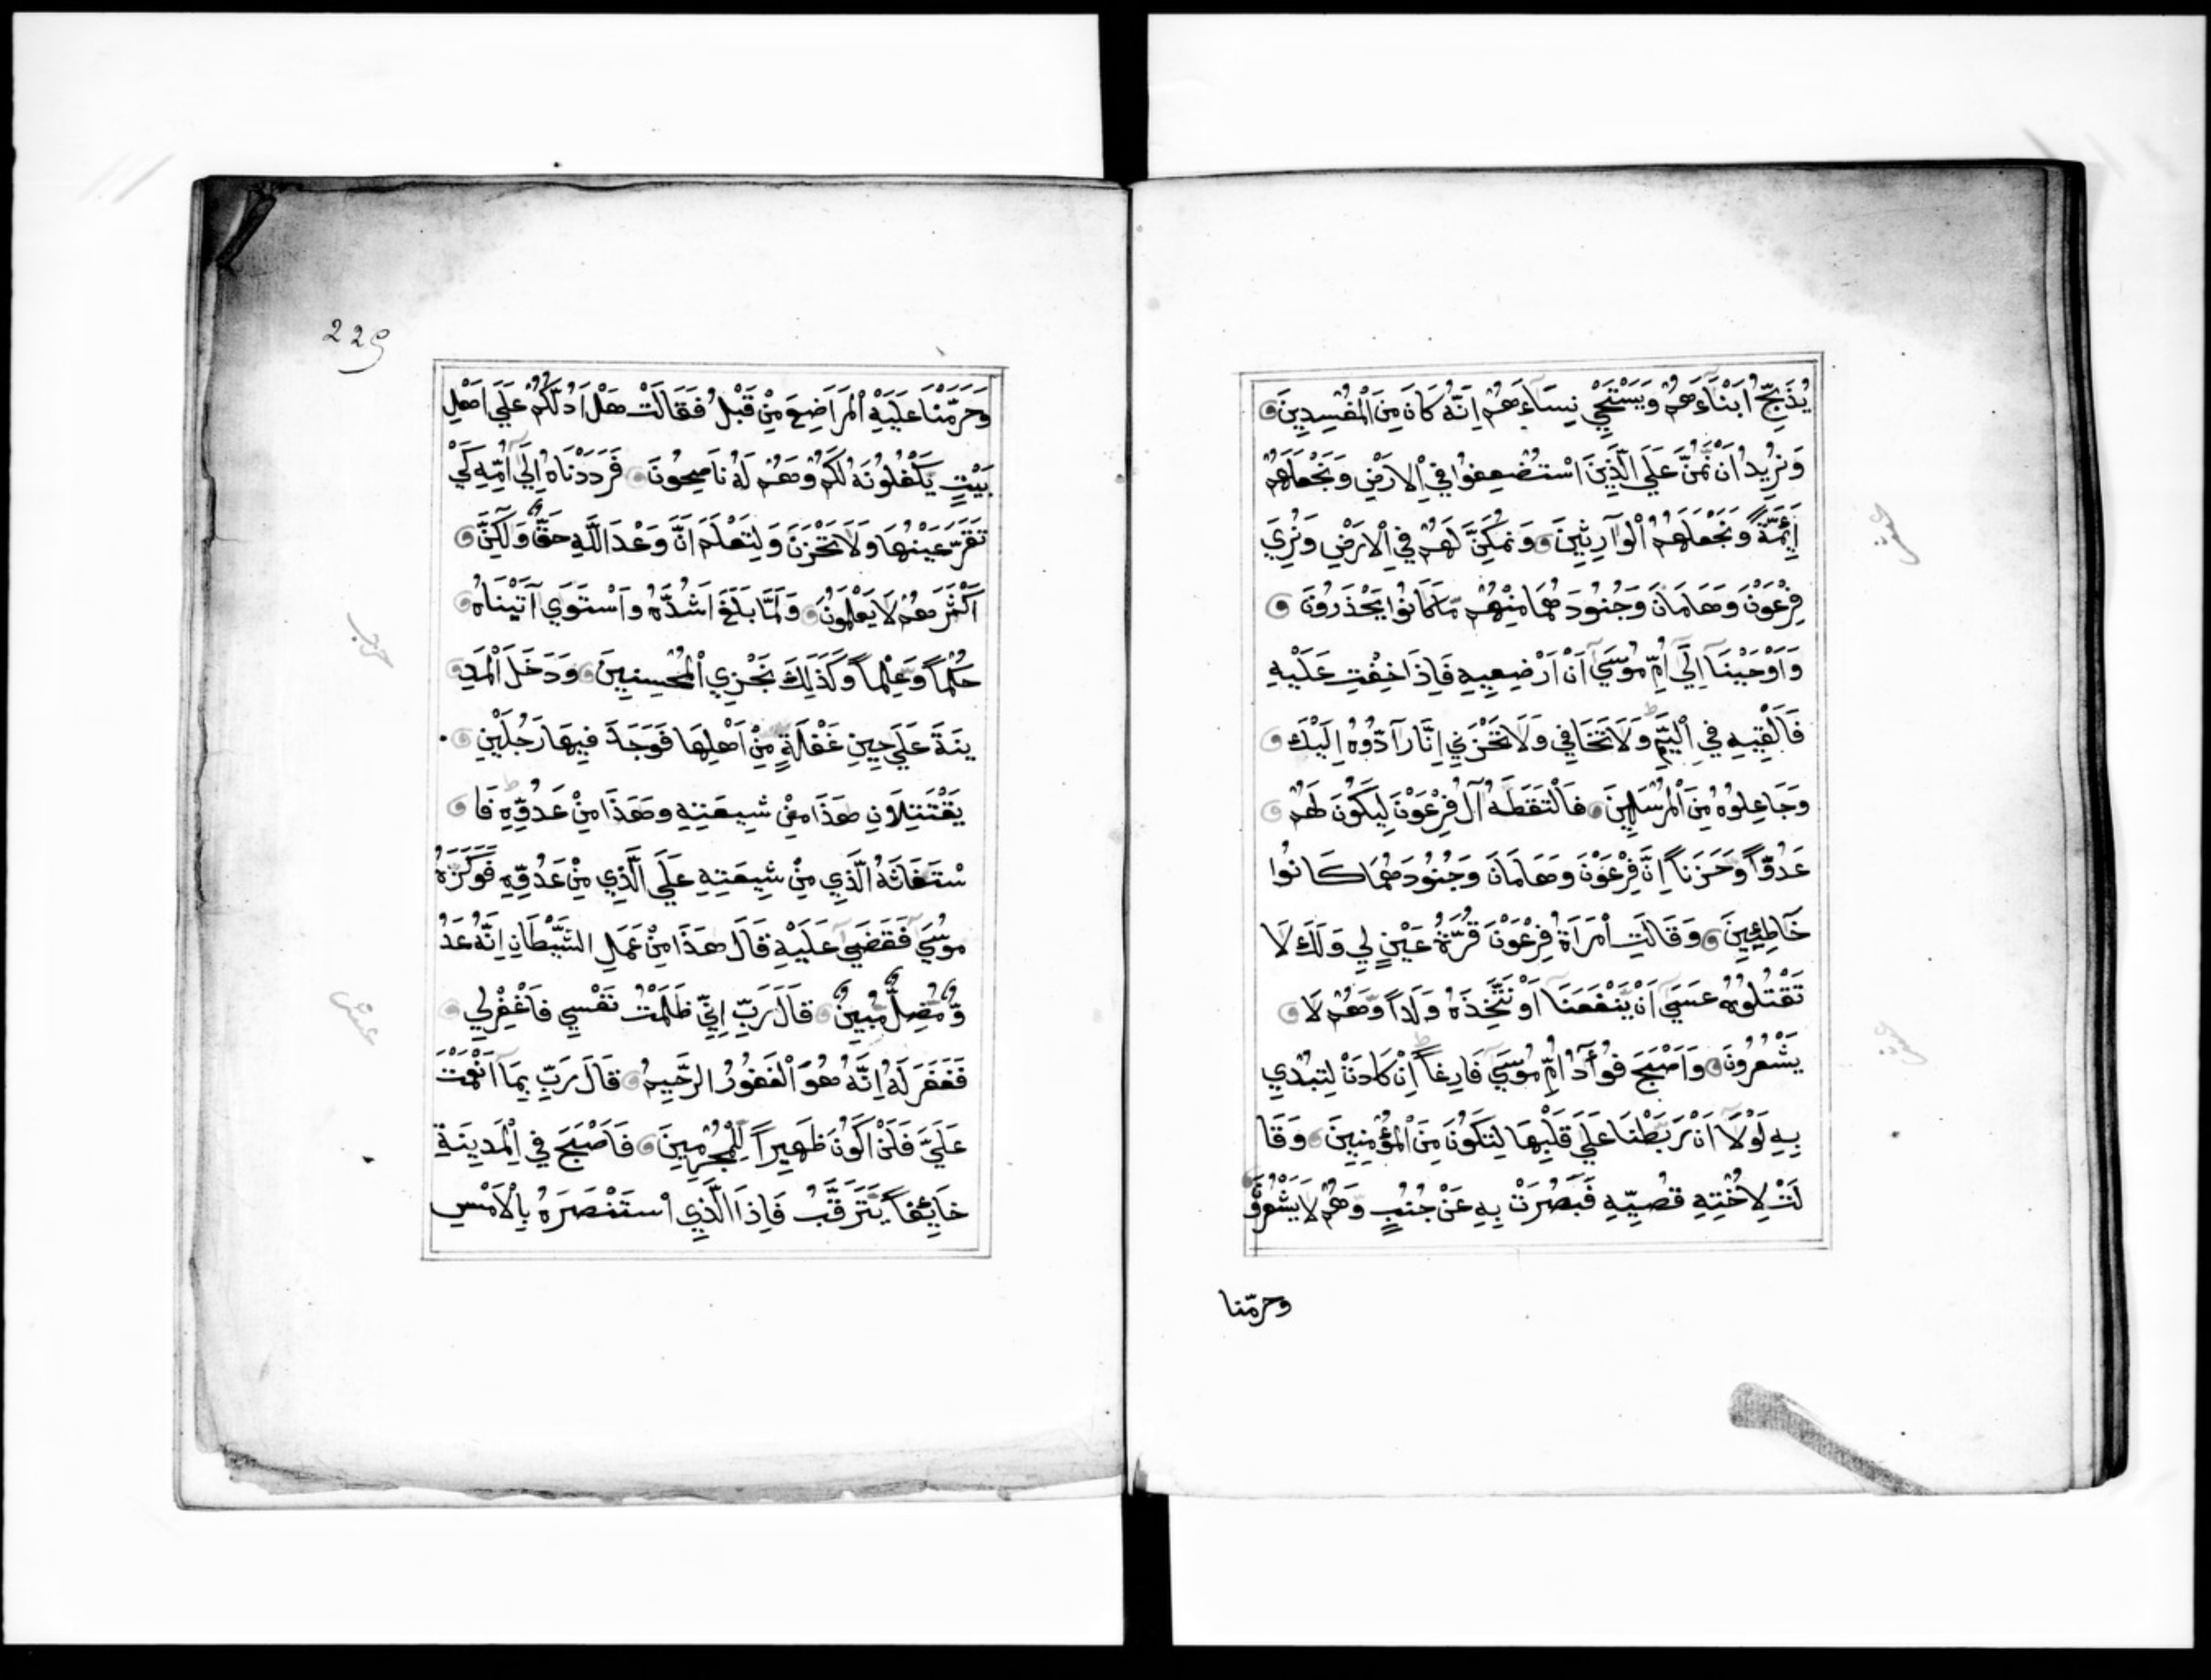 يُذَبِّحُ اَبْنَآءَهُمْ وَيَسْتَحْيِ نِسَآءَهُمْ اِنَّهُ كَانَ مِنَ الْمُفْسِدِينَ
وَنُرِيدُ اَنْ نَّمُنَّ عَلَي الَّذِينَ اسْتُضْعِفُوا فِي الْاَرْضِ وَنَجْعَلَهُمْ
اَئِمَّةً وَنَجْعَلَهُمُ الْوَارِثِينَ وَنُمَكِّنَّ لَهُمْ فِي الْاَرْضِ وَنُرِيَ
فِرْعَوْنَ وَهَامَانَ وَجُنُودَهُمَا مِنْهُمْ مَّا كَانُوا يَحْذَرُونَ
وَاَوْحَيْنَآ اِلَي اُمِّ مُوسَي اَنْ اَرْضِعِيهِ فَاِذَا خِفْتِ عَلَيْهِ
فَاَلْقِيهِ فِي الْيَمِّ وَلَا تَخَافِي وَلَا تَحْزَنِي اِنَّا رَآدُّوهُ اِلَيْكِ
وَجَاعِلُوهُ مِنَ الْمُرْسَلِينَ فَالْتَقَطَهُ آلُ فِرْعَوْنَ لِيَكُونَ لَهُمْ
عَدُوًّا وَّحَزَنًا اِنَّ فِرْعَوْنَ وَهَامَانَ وَجُنُودَهُمَا كَانُوا
خَاطِئِينَ وَقَالَتِ امْرَاَةُ فِرْعَوْنَ قُرَّةُ عَيْنٍ لِي وَلَكَ لَا
تَقْتُلُوهُ عَسَي اَنْ يَّنْفَعَنَآ اَوْ نَتَّخِذَهُ وَلَدًا وَّهُمْ لَا
يَشْعُرُونَ وَاَصْبَحَ فُوآدُ اُمِّ مُوسَي فَارِغًا اِنْ كَادَتْ لَتُبْدِي
بِهِ لَوْلَا اَنْ رَّبَطْنَا عَلَي قَلْبِهَا لِتَكُونَ مِنَ الْمُؤْمِنِينَ وَقَا
لَتْ لِاُخْتِهِ قُصِّيهِ فَبَصُرَتْ بِهِ عَنْ جُنُبٍ وَّهُمْ لَا يَشْعُرُونَ
وحرّمنا
229
وَحَرَّمْنَا عَلَيْهِ الْمَرَاضِعَ مِنْ قَبْلُ فَقَالَتْ هَلْ اَدُلُّكُمْ عَلَي اَهْلِ
بَيْتٍ يَّكْفُلُونَهُ لَكُمْ وَهُمْ لَهُ نَاصِحُونَ فَرَدَدْنَاهُ اِلَي اُمِّهِ كَيْ
تَقَرَّ عَيْنُهَا وَلَا تَحْزَنَ وَلِتَعْلَمَ اَنَّ وَعْدَ اللَّهِ حَقٌّ وَّلَكِنَّ
اَكْثَرَهُمْ لَا يَعْلَمُونَ وَلَمَّا بَلَغَ اَشُدَّهُ وَاسْتَوَي آتَيْنَاهُ
حُكْمًا وَّعِلْمًا وَكَذَلِكَ نَجْزِي الْمُحْسِنِينَ وَدَخَلَ الْمَدِ
ينَةَ عَلَي حِينِ غَفْلَةٍ مِّنْ اَهْلِهَا فَوَجَدَ فِيهَا رَجُلَيْنِ
يَقْتَتِلَانِ هَذَا مِنْ شِيعَتِهِ وَهَذَا مِنْ عَدُوِّهِ فَا
سْتَغَاثَهُ الَّذِي مِنْ شِيعَتِهِ عَلَي الَّذِي مِنْ عَدُوِّهِ فَوَكَزَهُ
مُوسَي فَقَضَي عَلَيْهِ قَالَ هَذَا مِنْ عَمَلِ الشَّيْطَانِ اِنَّهُ عَدُ
وٌّ مُّضِلٌّ مُّبِينٌ قَالَ رَبِّ اِنِّي ظَلَمْتُ نَفْسِي فَاغْفِرْ لِي
فَغَفَرَ لَهُ اِنَّهُ هُوَ الْغَفُورُ الرَّحِيمُ قَالَ رَبِّ بِمَآ اَنْعَمْتَ
عَلَيَّ فَلَنْ اَكُونَ ظَهِيرًا لِّلْمُجْرِمِينَ فَاَصْبَحَ فِي الْمَدِينَةِ
خَآئِفًا يَّتَرَقَّبُ فَاِذَا الَّذِي اسْتَنْصَرَهُ بِالْاَمْسِ
حزب
عشر